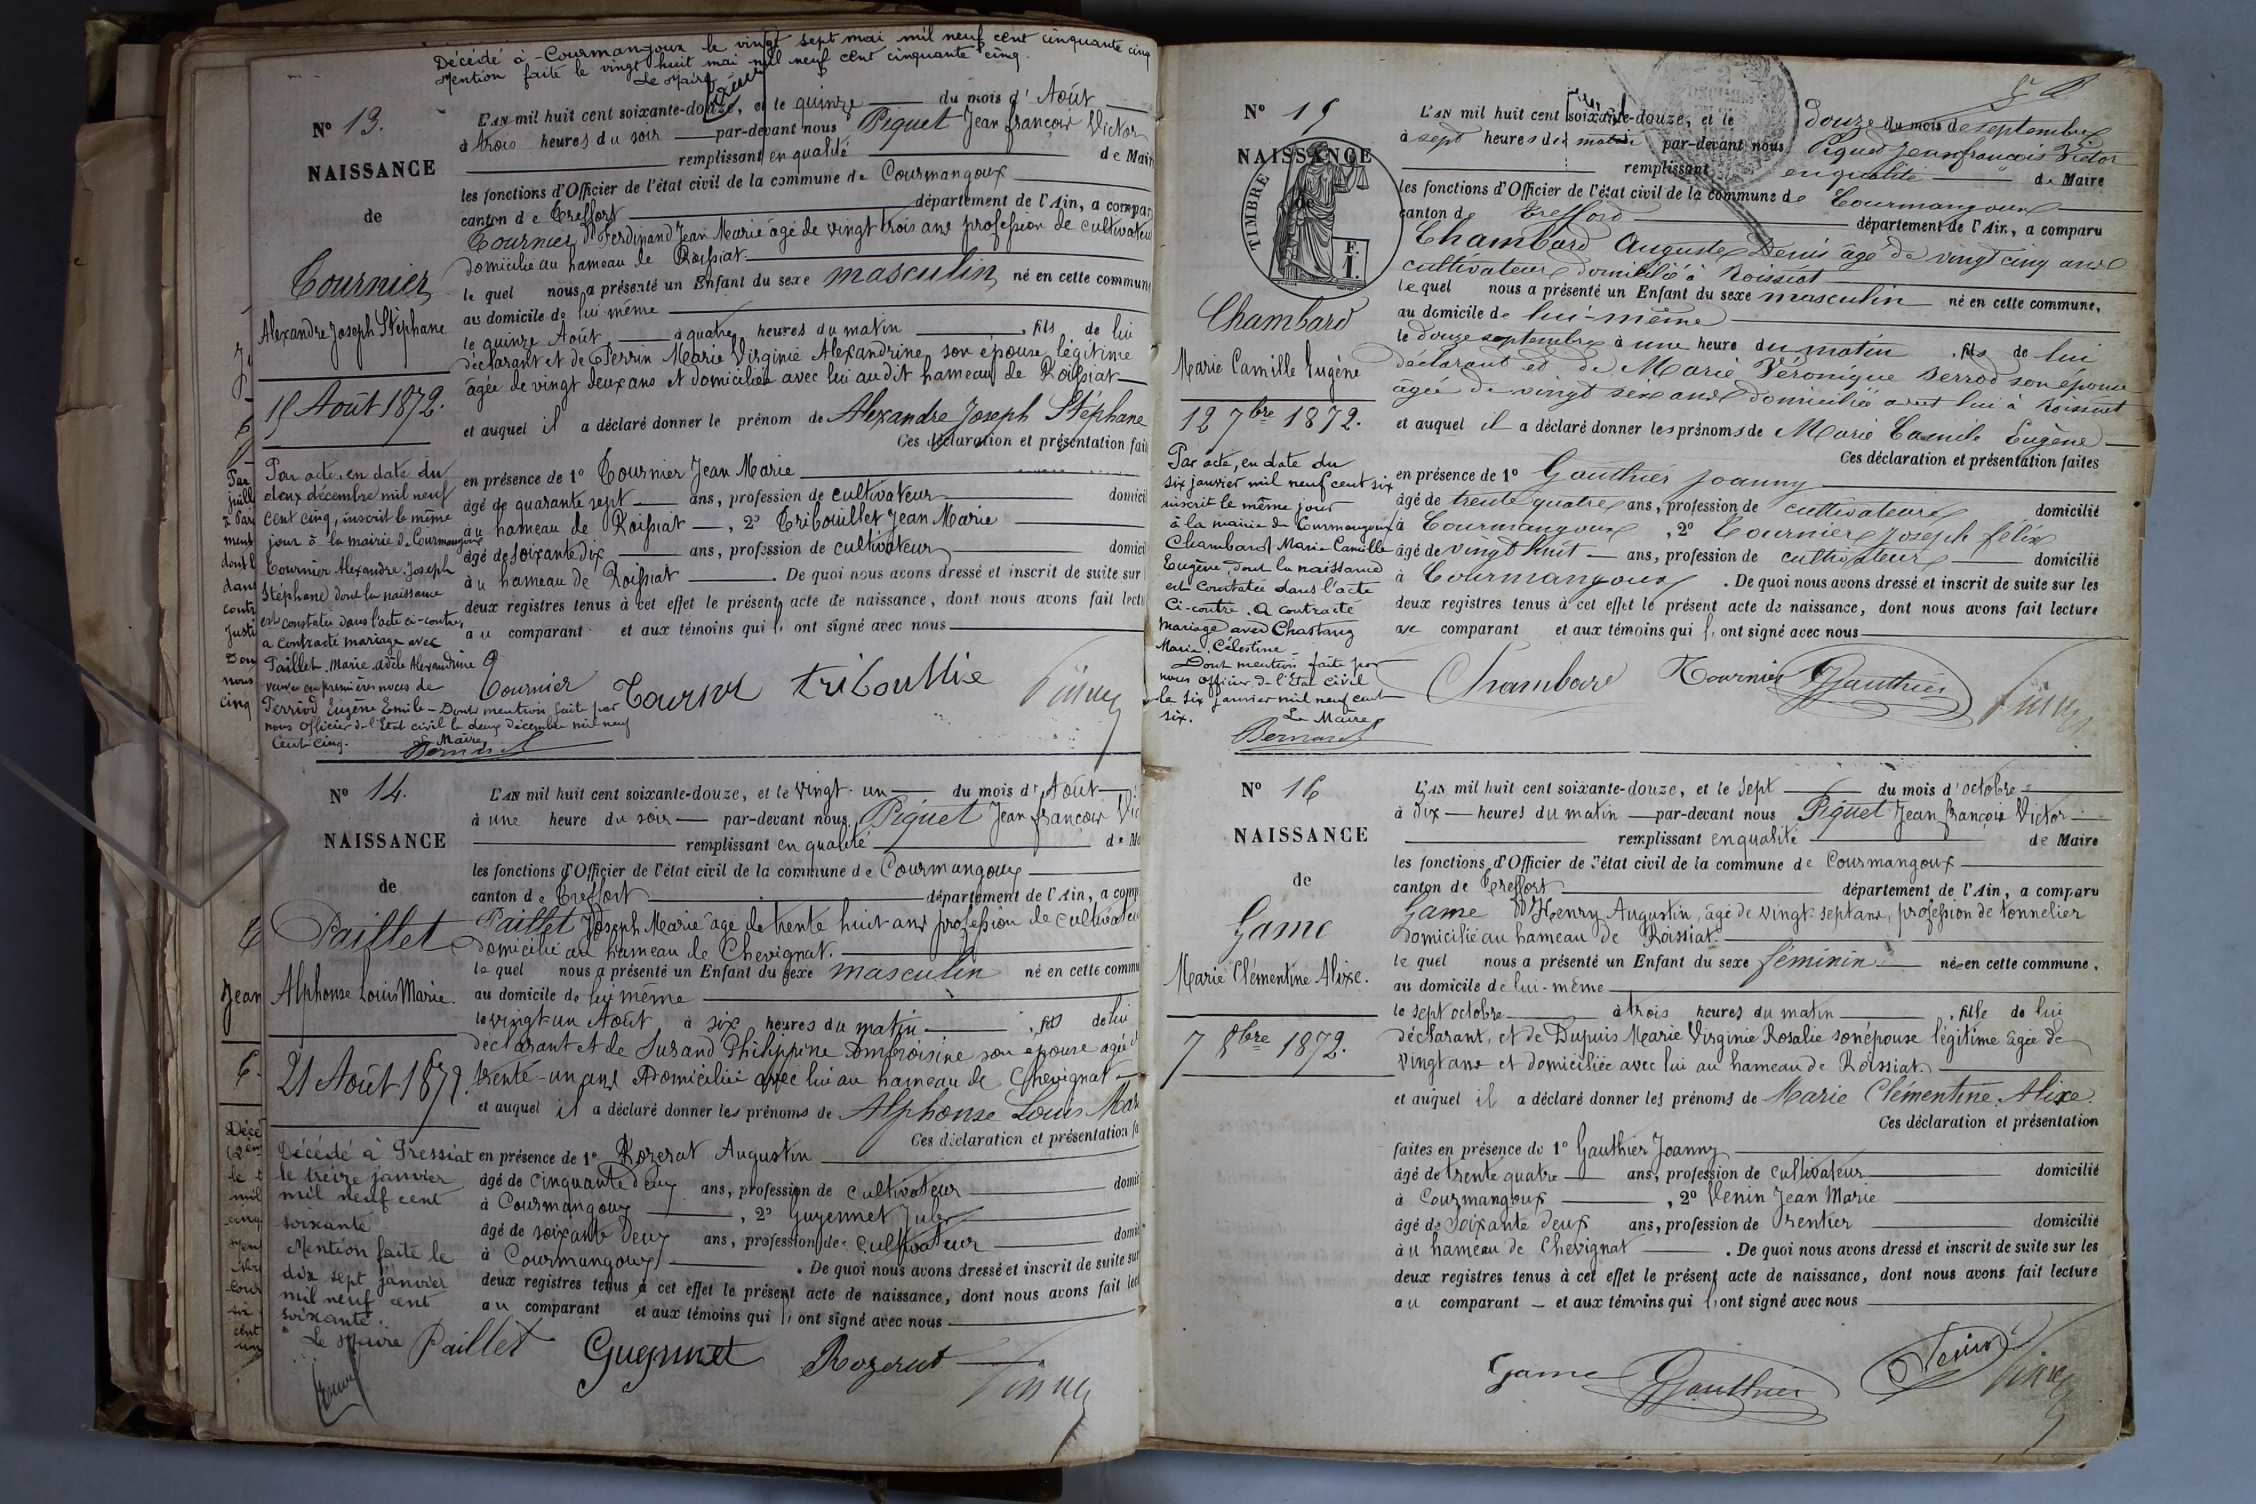 Décédé à Courmangoux le vingt sept mai mil neuf cent cinquante cinq
Mention faite le vingt huit mai mil neuf cent cinquante cinq.
Le Maire
N° 13.
NAISSANCE
de
Tournier
Alexandre Joseph Stéphane
15 Août 1872.
Par acte, en date du
deux décembre mil neuf
cent cinq, inscrit le même
jour à la mairie de Courmangoux
Tournier Alexandre Joseph
Stéphane dont la naissance
est constatée dans l'acte ci-contre,
a contracté mariage avec
Paillet Marie Adèle Alexandrine
veuve en premières noces de
Perriod Eugène Emile - Dont mention faite par
nous officier de l'Etat civil le deux décembre mil neuf
cent cinq.
Le Maire
L'AN mil huit cent soixante-douze, et le quinze du mois d'Août
à trois heures du soir par-devant nous Piquet Jean françois Victor
remplissant en qualité de Mair
les fonctions d'Officier de l'état civil de la commune de Courmangoux
canton de Treffort département de l'Ain, a compar
Tournier Ferdinand Jean Marie âgé de vingt trois ans profession de cultivateur
domicilié au hameau de Roissiat
le quel nous a présenté un Enfant du sexe masculin né en cette commun
au domicile de lui-même
le quinze Août à quatre heures du matin, fils de lui
déclarant et de Perrin Marie Virginie Alexandrine son épouse légitime
âgée de vingt deux ans et domiciliée avec lui au dit hameau de Roissiat
et auquel il a déclaré donner le prénom de Alexandre Joseph Stéphane
Ces déclaration et présentation fait
en présence de 1° Tournier Jean Marie
âgé de quarante sept ans, profession de cultivateur domicil
au hameau de Roissiat, 2° Tribouillet Jean Marie
âgé de soixante dix ans, profession de cultivateur domici
au hameau de Roissiat. De quoi nous avons dressé et inscrit de suite sur
deux registres tenus à cet effet le présent acte de naissance, dont nous avons fait lectu
au comparant et aux témoins qui l'ont signé avec nous
Tournier
N° 14.
NAISSANCE
de
Paillet
Alphonse Louis Marie.
21 Août 1872.
Décédé à Pressiat
le treize janvier
mil neuf cent
soixante
Mention faite le
dix sept janvier
mil neuf cent
soixante.
Le Maire
L'AN mil huit cent soixante-douze, et le vingt-un du mois d'Août
à une heure du soir par-devant nous Piquet Jean françois Vic
remplissant en qualité de Ma
les fonctions d'Officier de l'état civil de la commune de Courmangoux
canton de Treffort département de l'Ain, a comp
Paillet Joseph Marie âgé de trente huit ans profession de cultivateu
domicilié au hameau de Chevignat.
le quel nous a présenté un Enfant du sexe masculin né en cette commu
au domicile de lui même
le vingt-un Août à six heures du matin, fils de lui
déclarant et de Surand Philippine Ambroisine son épouse agée
trente-un ans domiciliée avec lui au hameau de Chevignat
et auquel il a déclaré donner les prénoms de Alphonse Louis Mar
Ces déclaration et présentation fa
en présence de 1° Rozerat Augustin
âgé de cinquante deux ans, profession de cultivateur domic
à Courmangoux, 2° Guyennet Jules
âgé de soixante deux ans, profession de cultivateur domic
à Courmangoux. De quoi nous avons dressé et inscrit de suite sur
deux registres tenus à cet effet le présent acte de naissance, dont nous avons fait lect
au comparant et aux témoins qui l'ont signé avec nous
Paillet Guyennet Rozerat
N° 15
NAISSANCE
de
TIMBRE
F.
1.
Chambard
Marie Camille Eugène
12 7bre 1872.
Par acte, en date du
six janvier mil neuf cent six
inscrit le même jour
à la mairie de Courmangoux
Chambard Marie Camille
Eugène dont la naissance
est constatée dans l'acte
ci-contre. a contracté
mariage avec Chastang
Marie Célestine.
Dont mention faite par
nous officier de l'Etat civil
le six janvier mil neuf cent
six.
Le Maire
L'AN mil huit cent soixante-douze, et le douze du mois de septembre
à sept heures du par-devant nous Piquet Jean françois Victor
remplissant en qualité de Maire
les fonctions d'Officier de l'état civil de la commune de Courmangoux
canton de Treffort département de l'Ain, a comparu
Chambard Auguste Denis âgé de vingt cinq ans
cultivateur domicilié à Roissiat
le quel nous a présenté un Enfant du sexe masculin né en cette commune,
au domicile de lui-même
le douze septembre à une heure du matin, fils de lui
déclarant et de Marie Véronique Berrod son épouse
âgée de vingt six ans domiciliée avec lui à Roissiat
et auquel il a déclaré donner les prénoms de Marie Camile Eugène
Ces déclaration et présentation faites
en présence de 1° Gauthier Joanny
âgé de trente quatre ans, profession de cultivateur domicilié
à Courmangoux, 2° Tournier Joseph félix
âgé de vingt huit ans, profession de cultivateur domicilié
à Courmangoux. De quoi nous avons dressé et inscrit de suite sur les
deux registres tenus à cet effet le présent acte de naissance, dont nous avons fait lecture
au comparant et aux témoins qui l'ont signé avec nous
Chambard Tournier Gauthier
N° 16
NAISSANCE
de
Game
Marie Clémentine Alixe.
7 8bre 1872.
L'AN mil huit cent soixante-douze, et le sept du mois d'octobre
à dix heures du matin par-devant nous Piquet Jean françois Victor
remplissant en qualité de Maire
les fonctions d'Officier de l'état civil de la commune de Courmangoux
canton de Treffort département de l'Ain, a comparu
Game Henry Augustin, âgé de vingt-sept ans, profession de tonnelier
domicilié au hameau de Roissiat.
le quel nous a présenté un Enfant du sexe féminin née en cette commune,
au domicile de lui-même
le sept octobre à trois heures du matin, fille de lui
déclarant, et de Dupuis Marie Virginie Rosalie son épouse légitime agée de
vingt ans et domiciliée avec lui au hameau de Roissiat
et auquel il a déclaré donner les prénoms de Marie Clémentine Alixe.
Ces déclaration et présentation
faites en présence de 1° Gauthier Joanny
âgé de trente quatre ans, profession de cultivateur domicilié
à Courmangoux, 2° Venin Jean Marie
âgé de soixante deux ans, profession de rentier domicilié
au hameau de Chevignat. De quoi nous avons dressé et inscrit de suite sur les
deux registres tenus à cet effet le présent acte de naissance, dont nous avons fait lecture
au comparant et aux témoins qui l'ont signé avec nous
Game Gauthier Venin